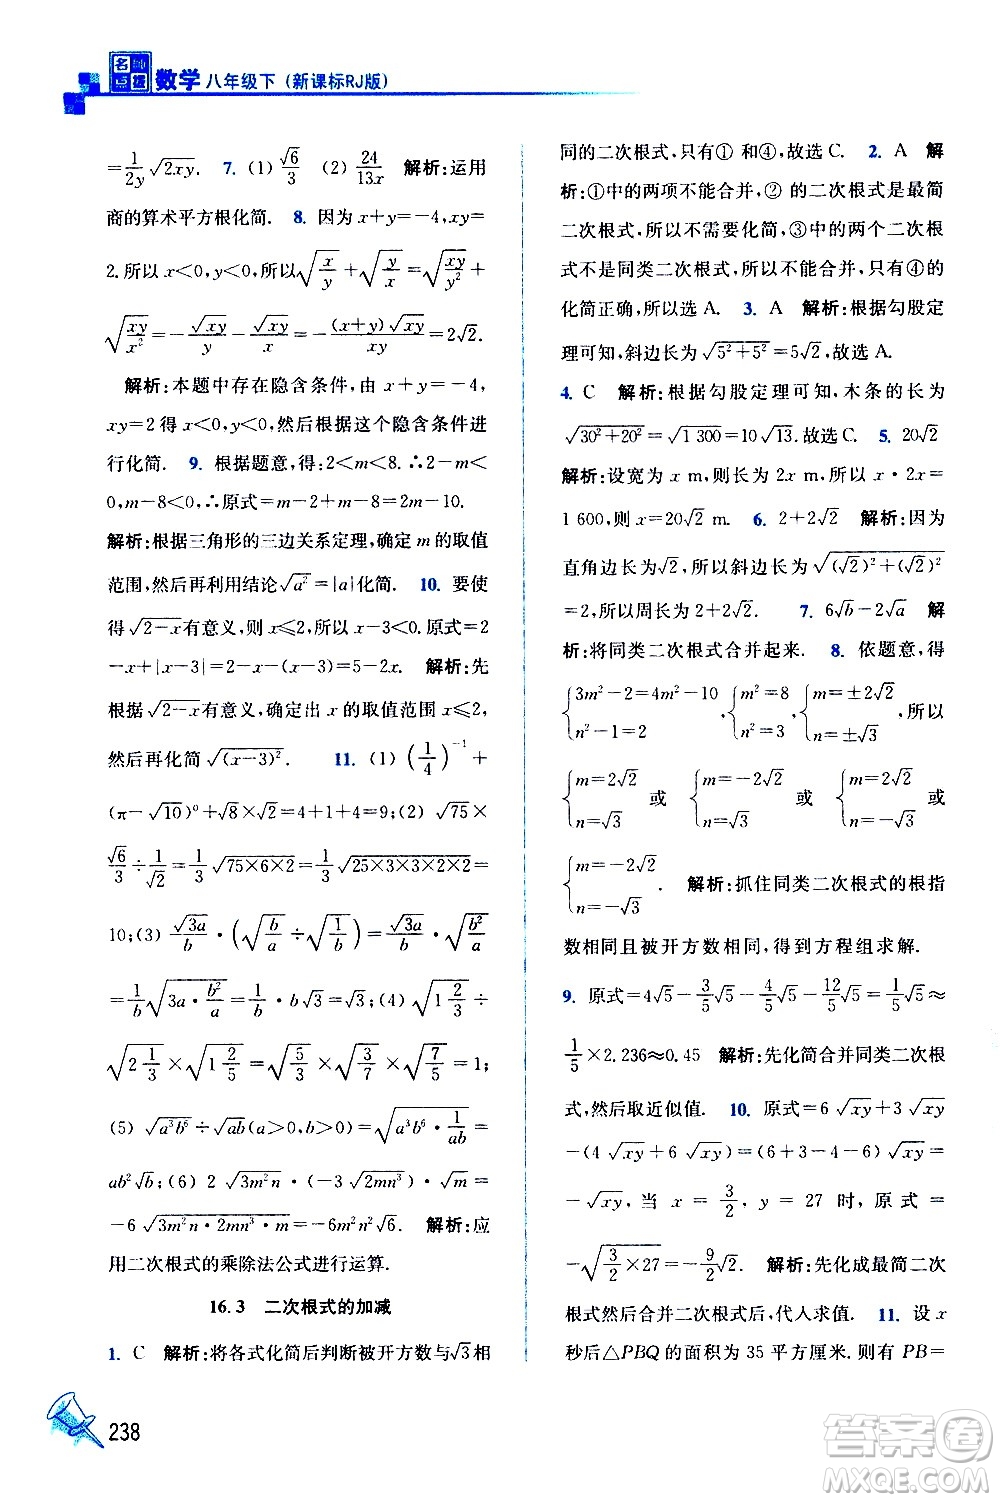 名师点拨 数学 八年级下（新课标RJ版）
=1/(2y) √(2xy). 7. (1) √6/3 (2) 24/(13x) 解析:运用
商的算术平方根化简. 8. 因为 x+y=-4,xy=
2.所以 x<0,y<0,所以√(x/y)+√(y/x)=√(xy/y²)+
√(xy/x²)=-√(xy)/y-√(xy)/x=-(x+y)√(xy)/(xy)=2√2.
解析:本题中存在隐含条件,由 x+y=-4,
xy=2 得 x<0,y<0,然后根据这个隐含条件进
行化简. 9. 根据题意,得:2<m<8.∴2-m<
0,m-8<0,∴原式=m-2+m-8=2m-10.
解析:根据三角形的三边关系定理,确定 m 的取值
范围,然后再利用结论√(a²)=|a|化简. 10. 要使
得√(2-x)有意义,则 x⩽2,所以 x-3<0.原式=2
-x+|x-3|=2-x-(x-3)=5-2x. 解析:先
根据√(2-x)有意义,确定出 x 的取值范围 x⩽2,
然后再化简 √((x-3)²). 11. (1) (1/4)⁻¹+
(π-√10)⁰+√8×√2=4+1+4=9;(2) √75×
√6/3÷1/√2=1/3√(75×6×2)=1/3√(25×3×2×2×2)=
10;(3) √(3a)/b·(√(b/a)÷√(1/b))=√(3a)/b·√(b²/a)
=1/b√(3a·b²/a)=1/b·b√3=√3;(4)√(1 2/3)÷
√(2 1/3)×√(1 2/5)=√(5/3)×√(3/7)×√(7/5)=1;
(5) √(a³b⁶)÷√(ab)(a>0,b>0)=√(a³b⁶·1/(ab))=
ab²√b;(6) 2√(3m²n)·(-3√(2mn³))·√m=
-6√(3m²n·2mn³·m)=-6m²n²√6. 解析:应
用二次根式的乘除法公式进行运算.
16.3 二次根式的加减
1. C 解析:将各式化简后判断被开方数与√3相
同的二次根式,只有① 和④,故选 C. 2. A 解
析:①中的两项不能合并,② 的二次根式是最简
二次根式,所以不需要化简,③中的两个二次根
式不是同类二次根式,所以不能合并,只有④的
化简正确,故选 A. 3. A 解析:根据勾股定
理可知,斜边长为√(5²+5²)=5√2,故选 A.
4. C 解析:根据勾股定理可知,木条的长为
√(30²+20²)=√(1 300)=10√13.故选 C. 5. 20√2
解析:设宽为 x m,则长为 2x m,所以 x·2x=
1 600,则 x=20√2 m. 6. 2+2√2 解析:因为
直角边长为√2,所以斜边长为√((√2)²+(√2)²)
=2,所以周长为 2+2√2. 7. 6√b-2√a 解
析:将同类二次根式合并起来. 8. 依题意,得
{3m²-2=4m²-10 n²-1=2,{m²=8 n²=3,{m=±2√2 n=±√3,所以
{m=2√2 n=√3 或 {m=-2√2 n=√3 或 {m=2√2 n=-√3 或
{m=-2√2 n=-√3. 解析:抓住同类二次根式的根指
数相同且被开方数相同,得到方程组求解.
9. 原式=4√5-3/5√5-4/5√5-12/5√5=1/5√5≈
1/5×2.236≈0.45 解析:先化简合并同类二次根
式,然后取近似值. 10. 原式=6√(xy)+3√(xy)
-(4√(xy)+6√(xy))=(6+3-4-6)√(xy)=
-√(xy),当 x=3/2,y=27 时,原式=
-√(3/2×27)=-9/2√2. 解析:先化成最简二次
根式然后合并二次根式,代人求值. 11. 设 x
秒后△PBQ 的面积为 35 平方厘米.则有 PB=
238
答案圈
MXQE.COM